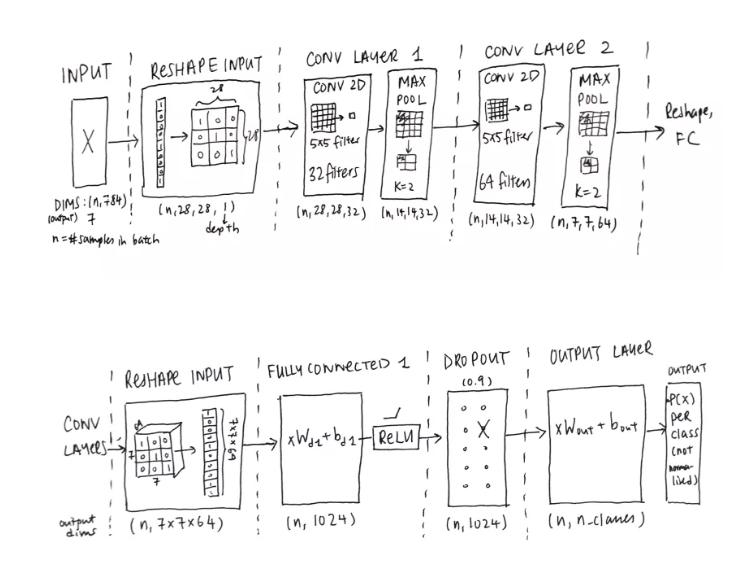 INPUT
X
DIMS: (n,784)
(output) 7
n = # samples in batch
RESHAPE INPUT
28
28
(n,28,28,1)
depth
CONV LAYER 1
CONV 2D
5x5 filter
32 filters
(n,28,28,32)
MAX
POOL
K=2
(n,14,14,32)
CONV LAYER 2
CONV 2D
5x5 filter
64 filters
(n,14,14,32)
MAX
POOL
K=2
(n,7,7,64)
Reshape,
FC
CONV
LAYERS
output
dims
RESHAPE INPUT
7
7
7x7x64
(n, 7x7x64)
FULLY CONNECTED 1
xWd1+bd1
ReLU
(n, 1024)
DROPOUT
(0.9)
X
(n, 1024)
OUTPUT LAYER
xWout + bout
(n, n_classes)
OUTPUT
P(x)
per
class
(not
norma-
lised)